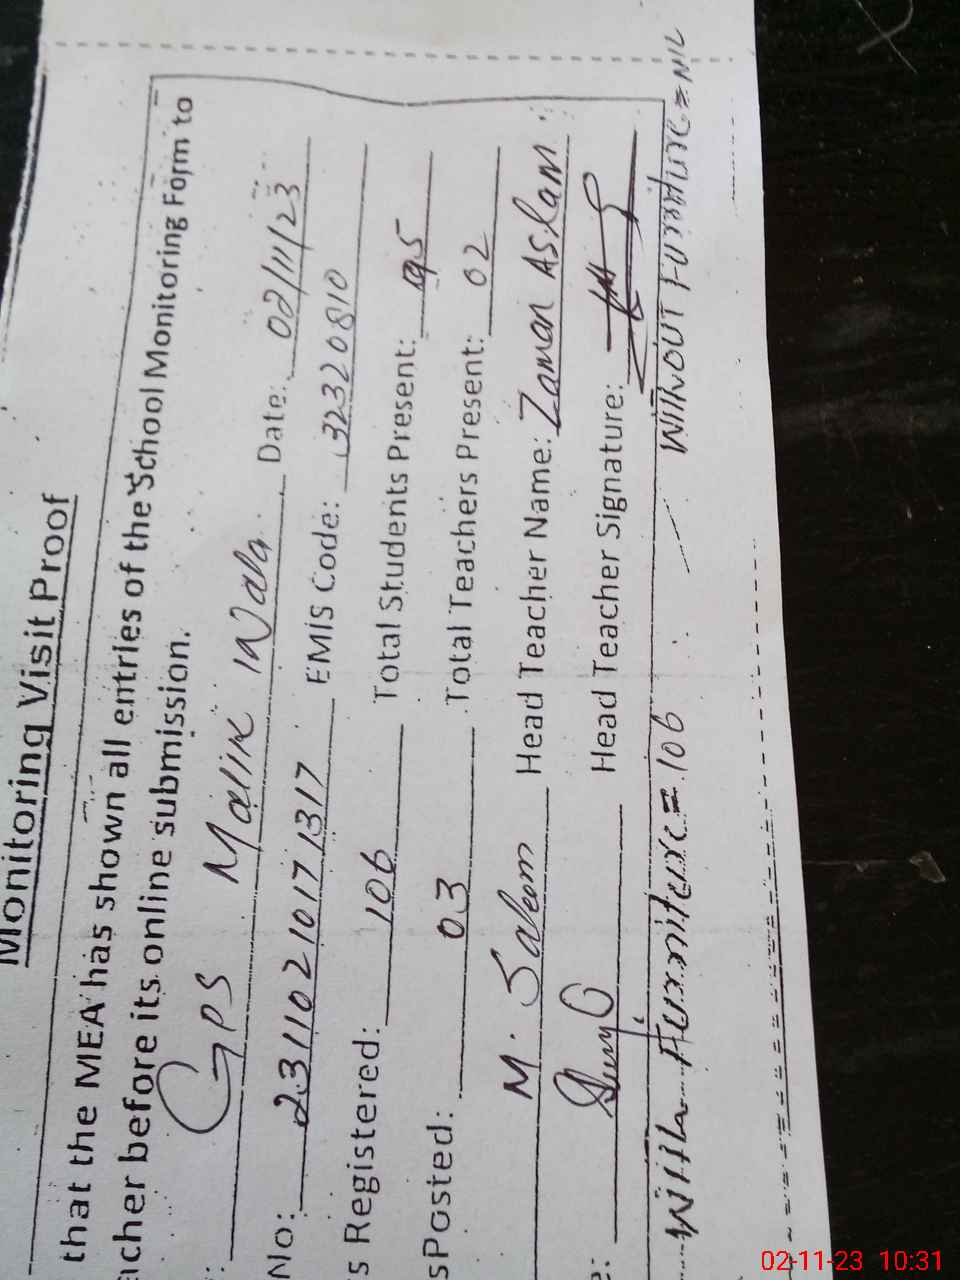 Monitoring Visit Proof
that the MEA has shown all entries of the School Monitoring Form to
acher before its online submission.
: GPS Malik Wala Date: 02/11/23
No: 23110210171317 EMIS Code: 32320810
s Registered: 106 Total Students Present: 95
s Posted: 03 Total Teachers Present: 02
M. Saleem Head Teacher Name: Zaman Aslam
e: Head Teacher Signature:
With Furniture = 106 Without Furniture = NIL
02-11-23 10:31